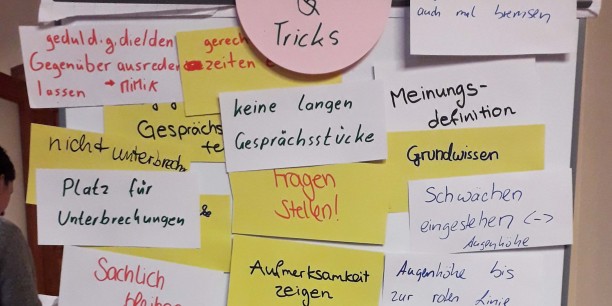 &
Tricks
auch mal bremsen
geduldig, die/den
Gegenüber ausreden
lassen → MiMiK
gerech
zeiten
Gesprächs
te
keine langen
Gesprächsstücke
Meinungs-
definition
nicht unterbrech
Grundwissen
Platz für
Unterbrechungen
Fragen
stellen!
Schwächen
eingestehen <->
Augenhöhe
Sachlich
bleiben
Aufmerksamkeit
zeigen
Augenhöhe bis
zur roten Linie